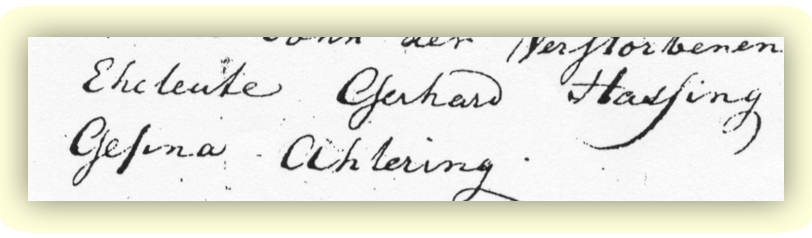 Sohn der Verstorbenen
Eheleute Gerhard Hassing
Gesina Ahlering.